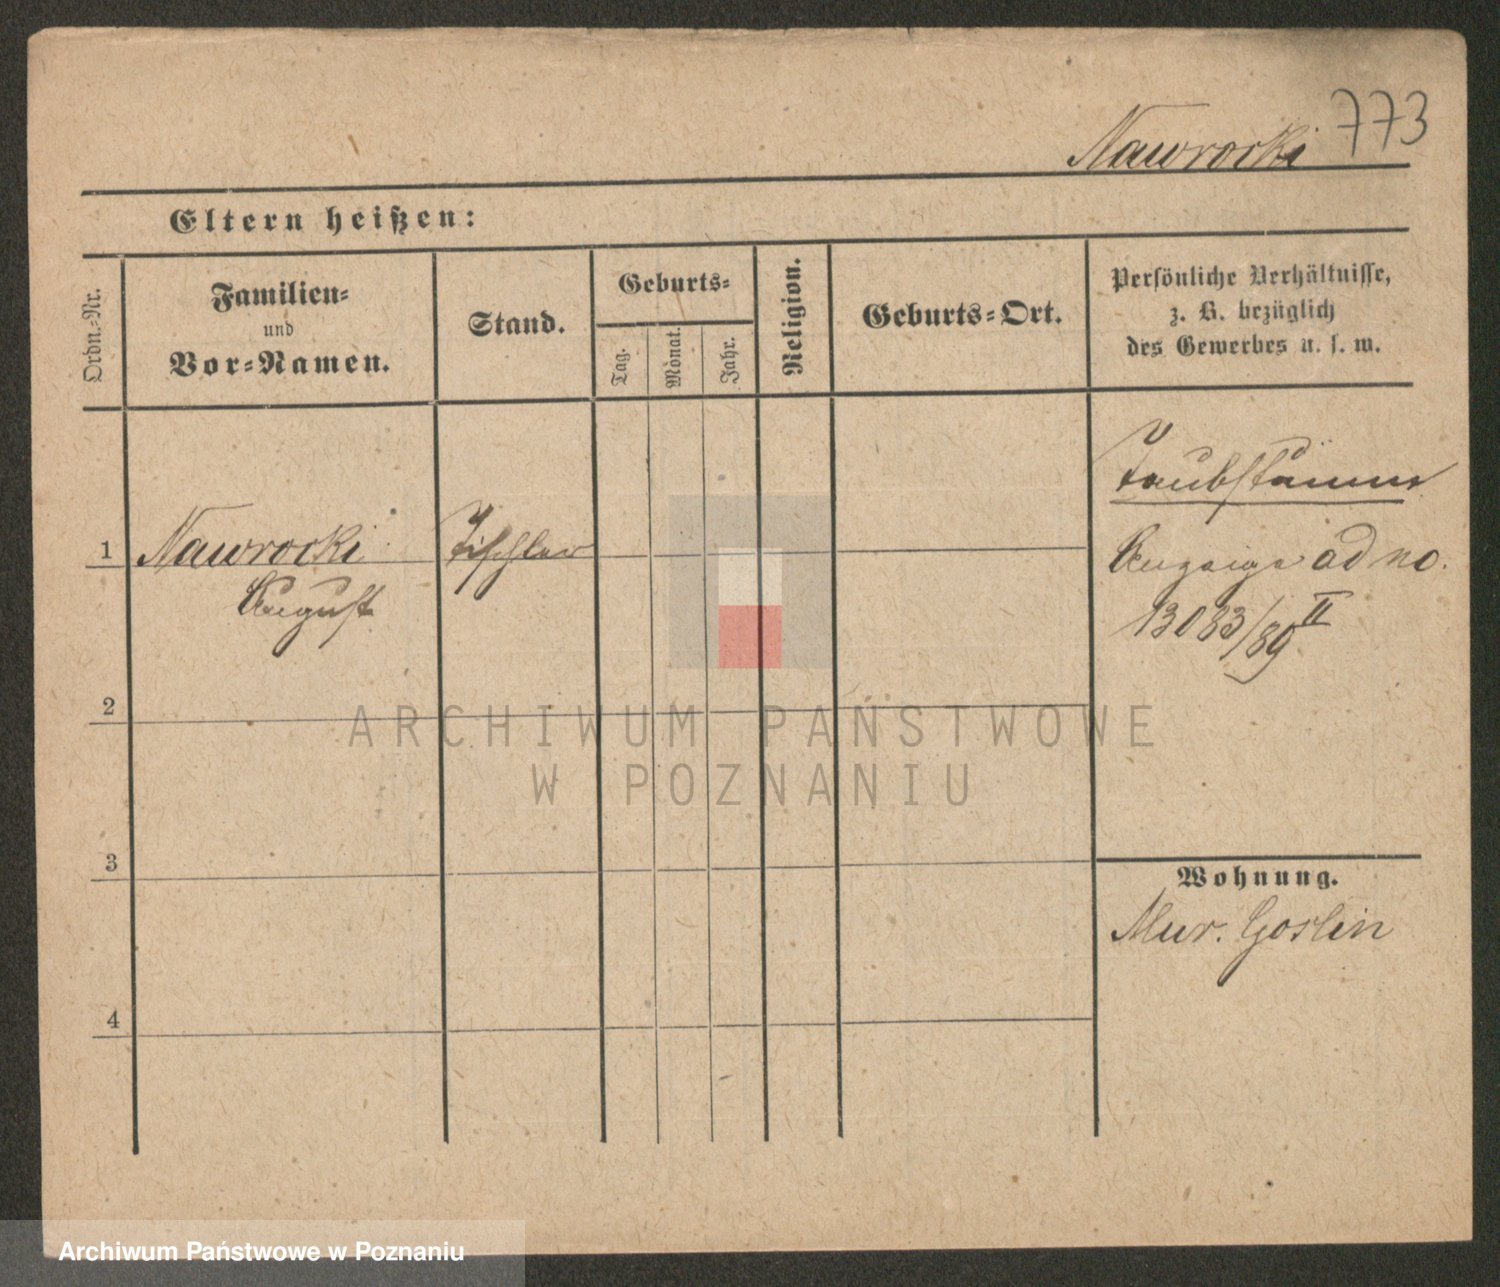 773
Nawrocki
Eltern heißen:
Ordn.-Nr.
Familien-
und
Vor-Namen.
Stand.
Geburts-
Tag.
Monat.
Jahr.
Religion.
Geburts-Ort.
Persönliche Verhältnisse,
z. B. bezüglich
des Gewerbes u. s. w.
1
Nawrocki
August
Tischler
Taubstumm
Anzeige ad no.
13083/89 II
2
3
4
Wohnung.
Mur. Goslin
ARCHIWUM PAŃSTWOWE
W POZNANIU
Archiwum Państwowe w Poznaniu